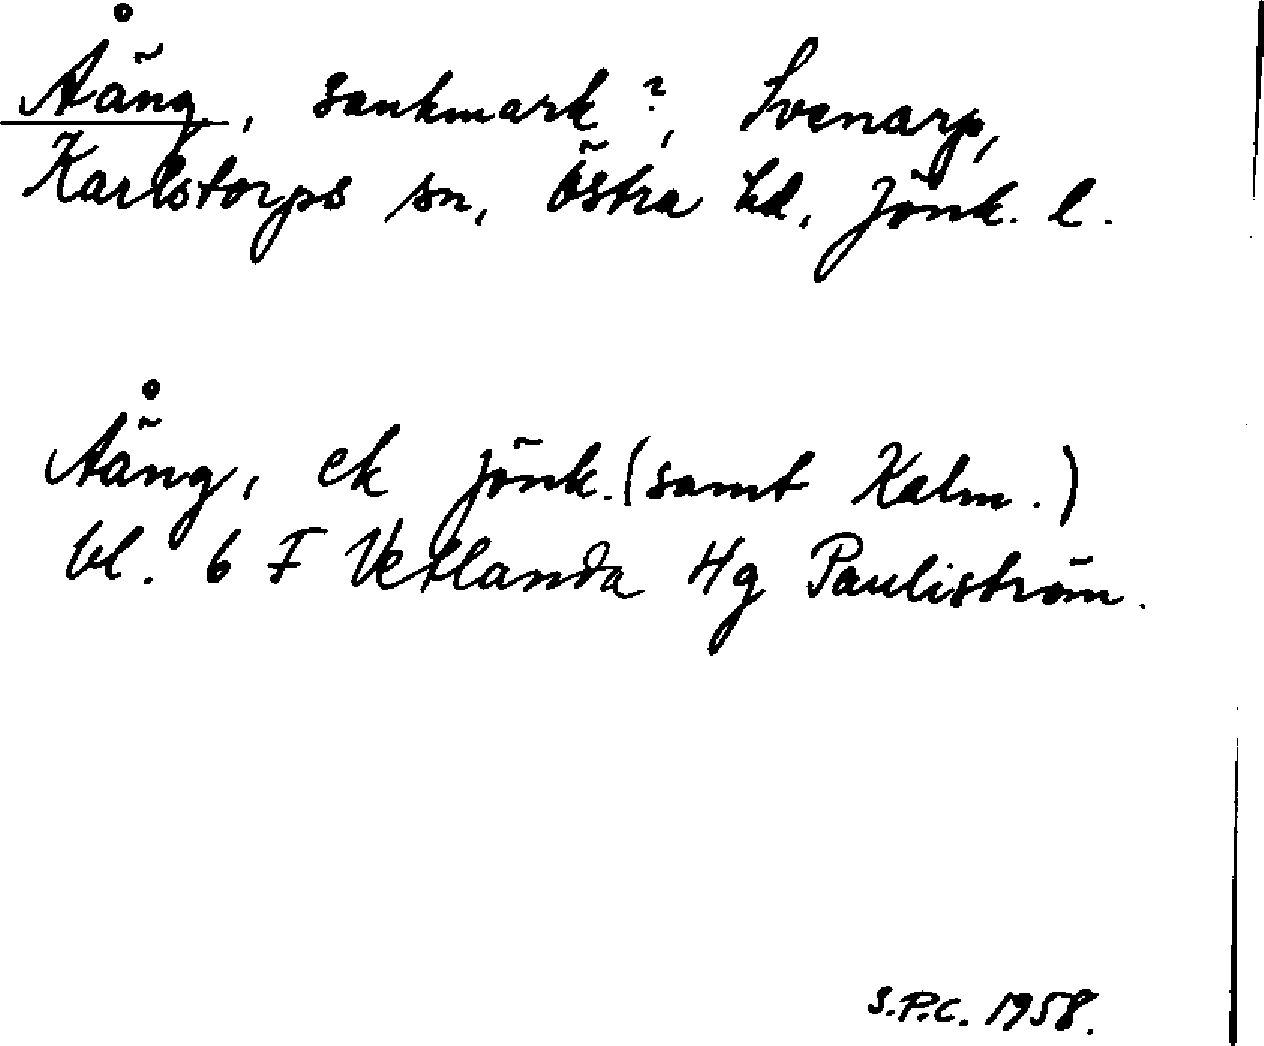 Åäng, sankmark?, Svenarp,
Karlstorps sn, Östra hd, Jönk. l.
Åäng, ek Jönk. (samt Kalm.)
bl. 6 F Vetlanda 4g Pauliström.
S.P.C. 1958.